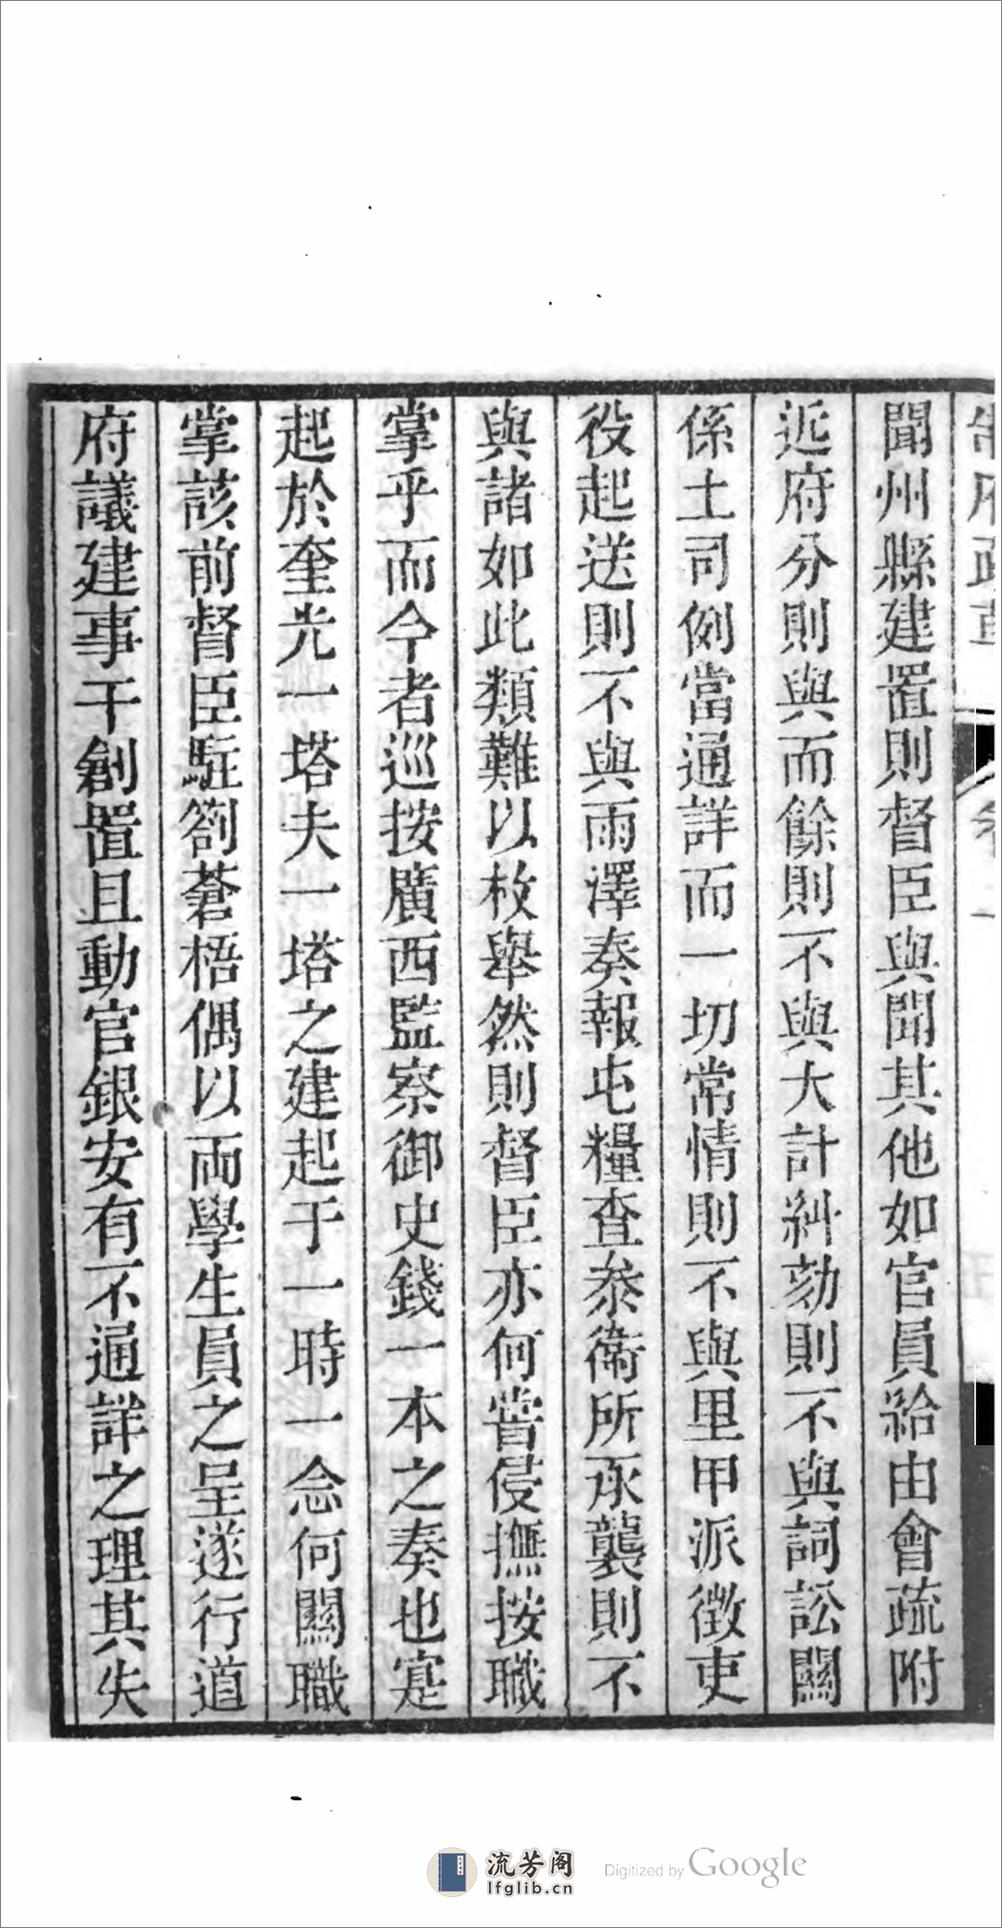 聞州縣建置則督臣與聞其他如官員給由會疏附
近府分則與而餘則不與大計糾劾則不與詞訟關
係土司例當通詳而一切常情則不與里甲派徵吏
役起送則不與雨澤奏報屯糧查叅衛所承襲則不
與諸如此類難以枚舉然則督臣亦何嘗侵撫按職
掌乎而今者巡按廣西監察御史錢一本之奏也寔
起於奎光一塔夫一塔之建起于一時一念何關職
掌該前督臣駐劄蒼梧偶以兩學生員之呈遂行道
府議建事干創置且動官銀安有不通詳之理其失
流芳阁
lfglib.cn
Digitized by Google